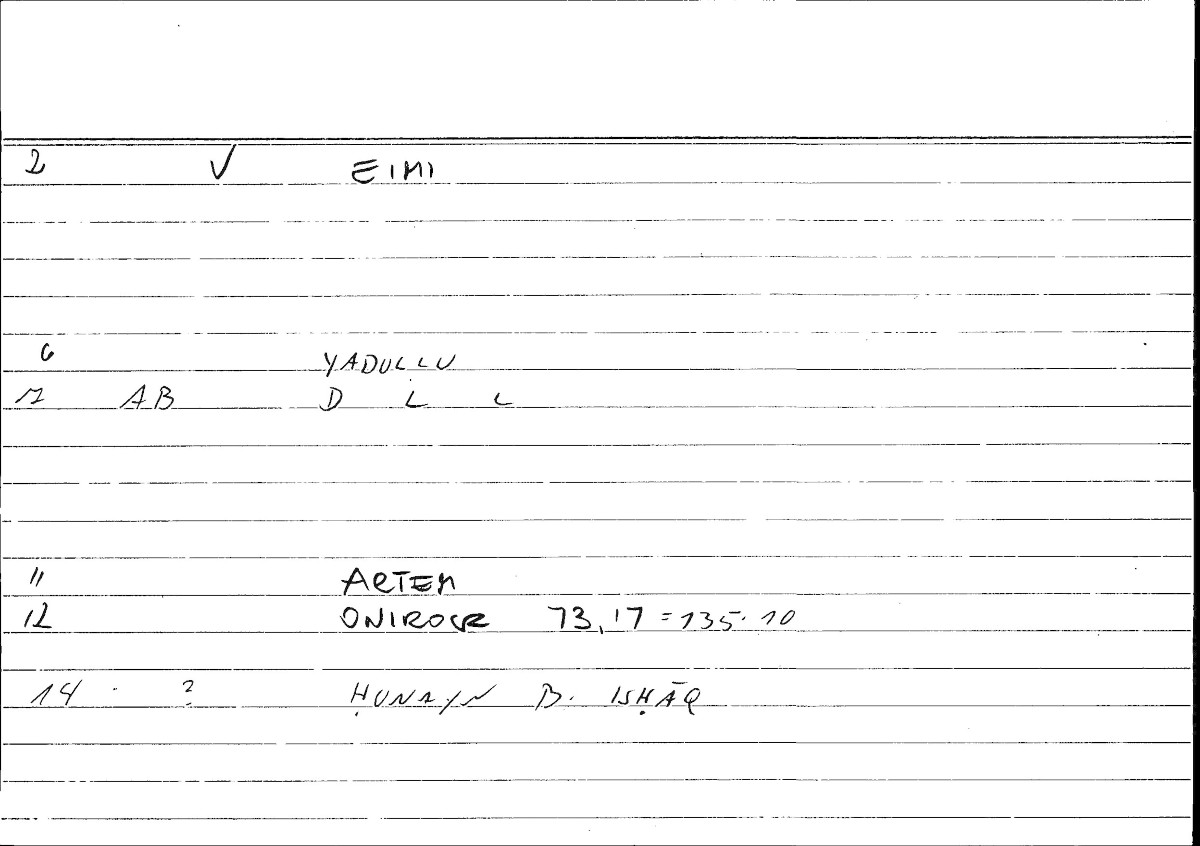 2 √ EIMI
6 YADULLU
7 AB D L L
11 ARTEM
12 ONIROCR 73,17 = 135.10
14 ? ḤUNAYN B. ISḤĀQ